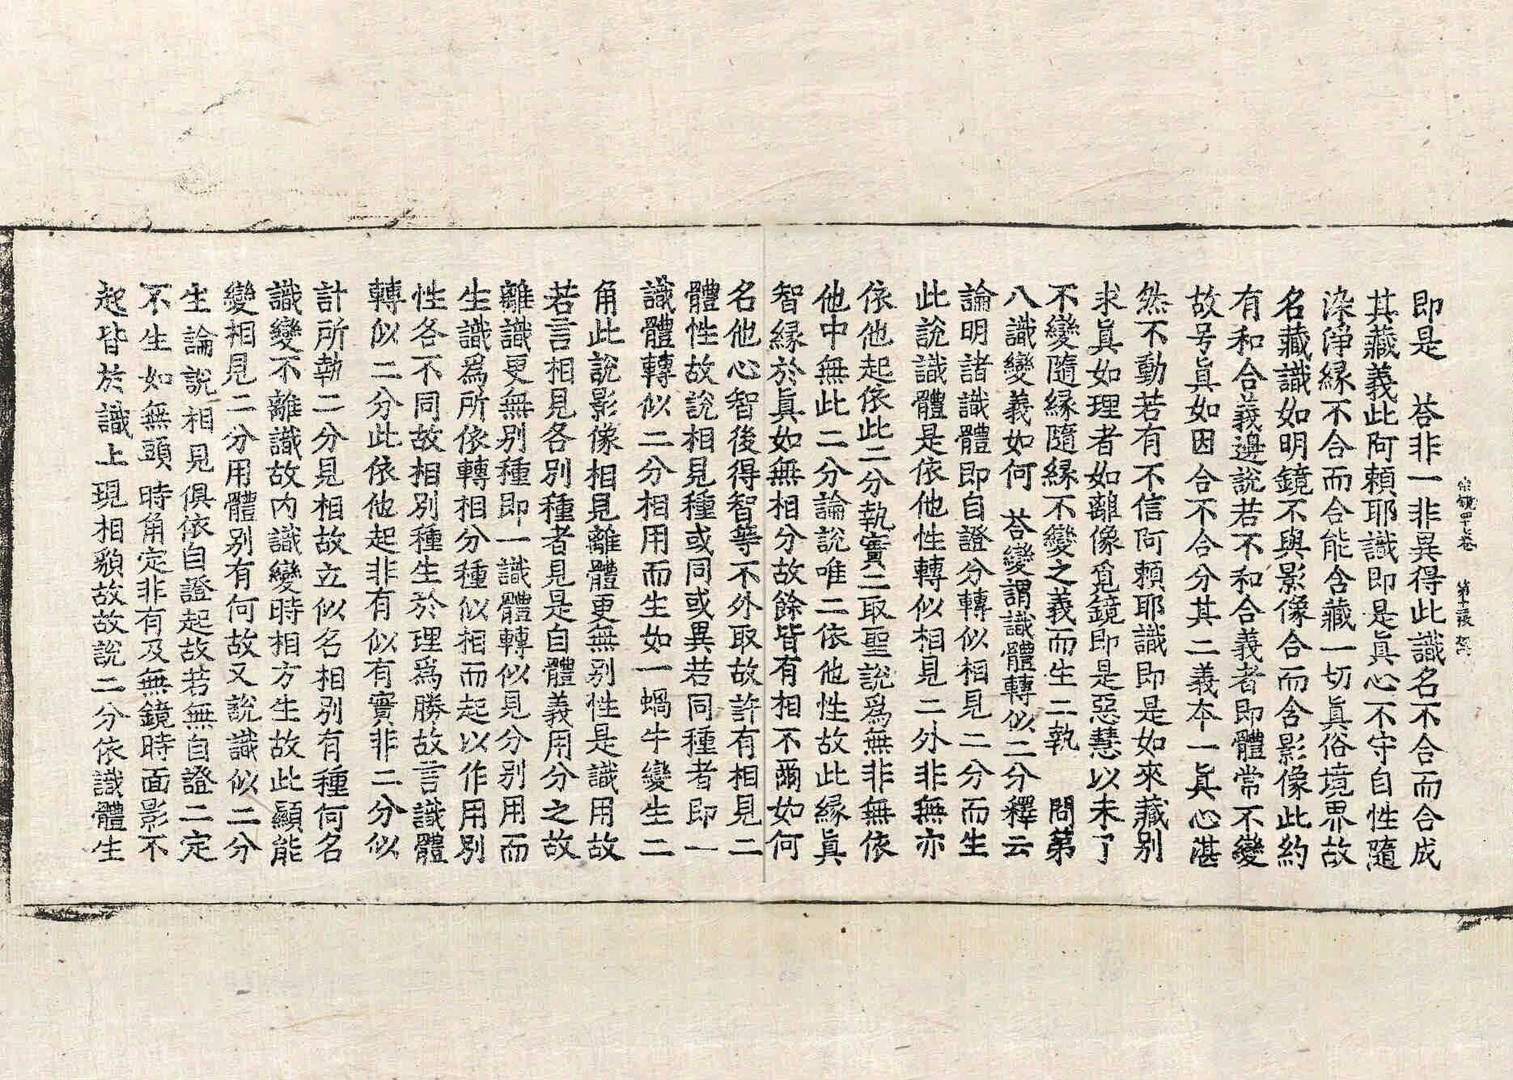 即是　荅非一非異得此識名不合而合成
其藏義此阿賴耶識即是眞心不守自性隨
染淨緣不合而合能含藏一切眞俗境界故
名藏識如明鏡不與影像合而含影像此約
有和合義邊說若不和合義者即體常不變
故号眞如因合不合分其二義本一眞心湛
然不動若有不信阿賴耶識即是如來藏別
求眞如理者如離像覓鏡即是惡慧以未了
不變隨緣隨緣不變之義而生二執　問第
八識變義如何　荅變謂識體轉似二分釋云
論明諸識體即自證分轉似相見二分而生
此說識體是依他性轉似相見二外非無亦
依他起依此二分執實二取聖說爲無非無依
他中無此二分論說唯二依他性故此緣眞
智緣於眞如無相分故餘皆有相不爾如何
名他心智後得智等不外取故許有相見二
體性故說相見種或同或異若同種者即一
識體轉似二分相用而生如一蝸牛變生二
角此說影像相見離體更無別性是識用故
若言相見各別種者見是自體義用分之故
離識更無別種即一識體轉似見分別用而
生識爲所依轉相分種似相而起以作用別
性各不同故相別種生於理爲勝故言識體
轉似二分此依他起非有似有實非二分似
計所執二分見相故立似名相別有種何名
識變不離識故內識變時相方生故此顯能
變相見二分用體別有何故又說識似二分
生論說相見俱依自證起故若無自證二定
不生如無頭時角定非有及無鏡時面影不
起皆於識上現相貌故故說二分依識體生